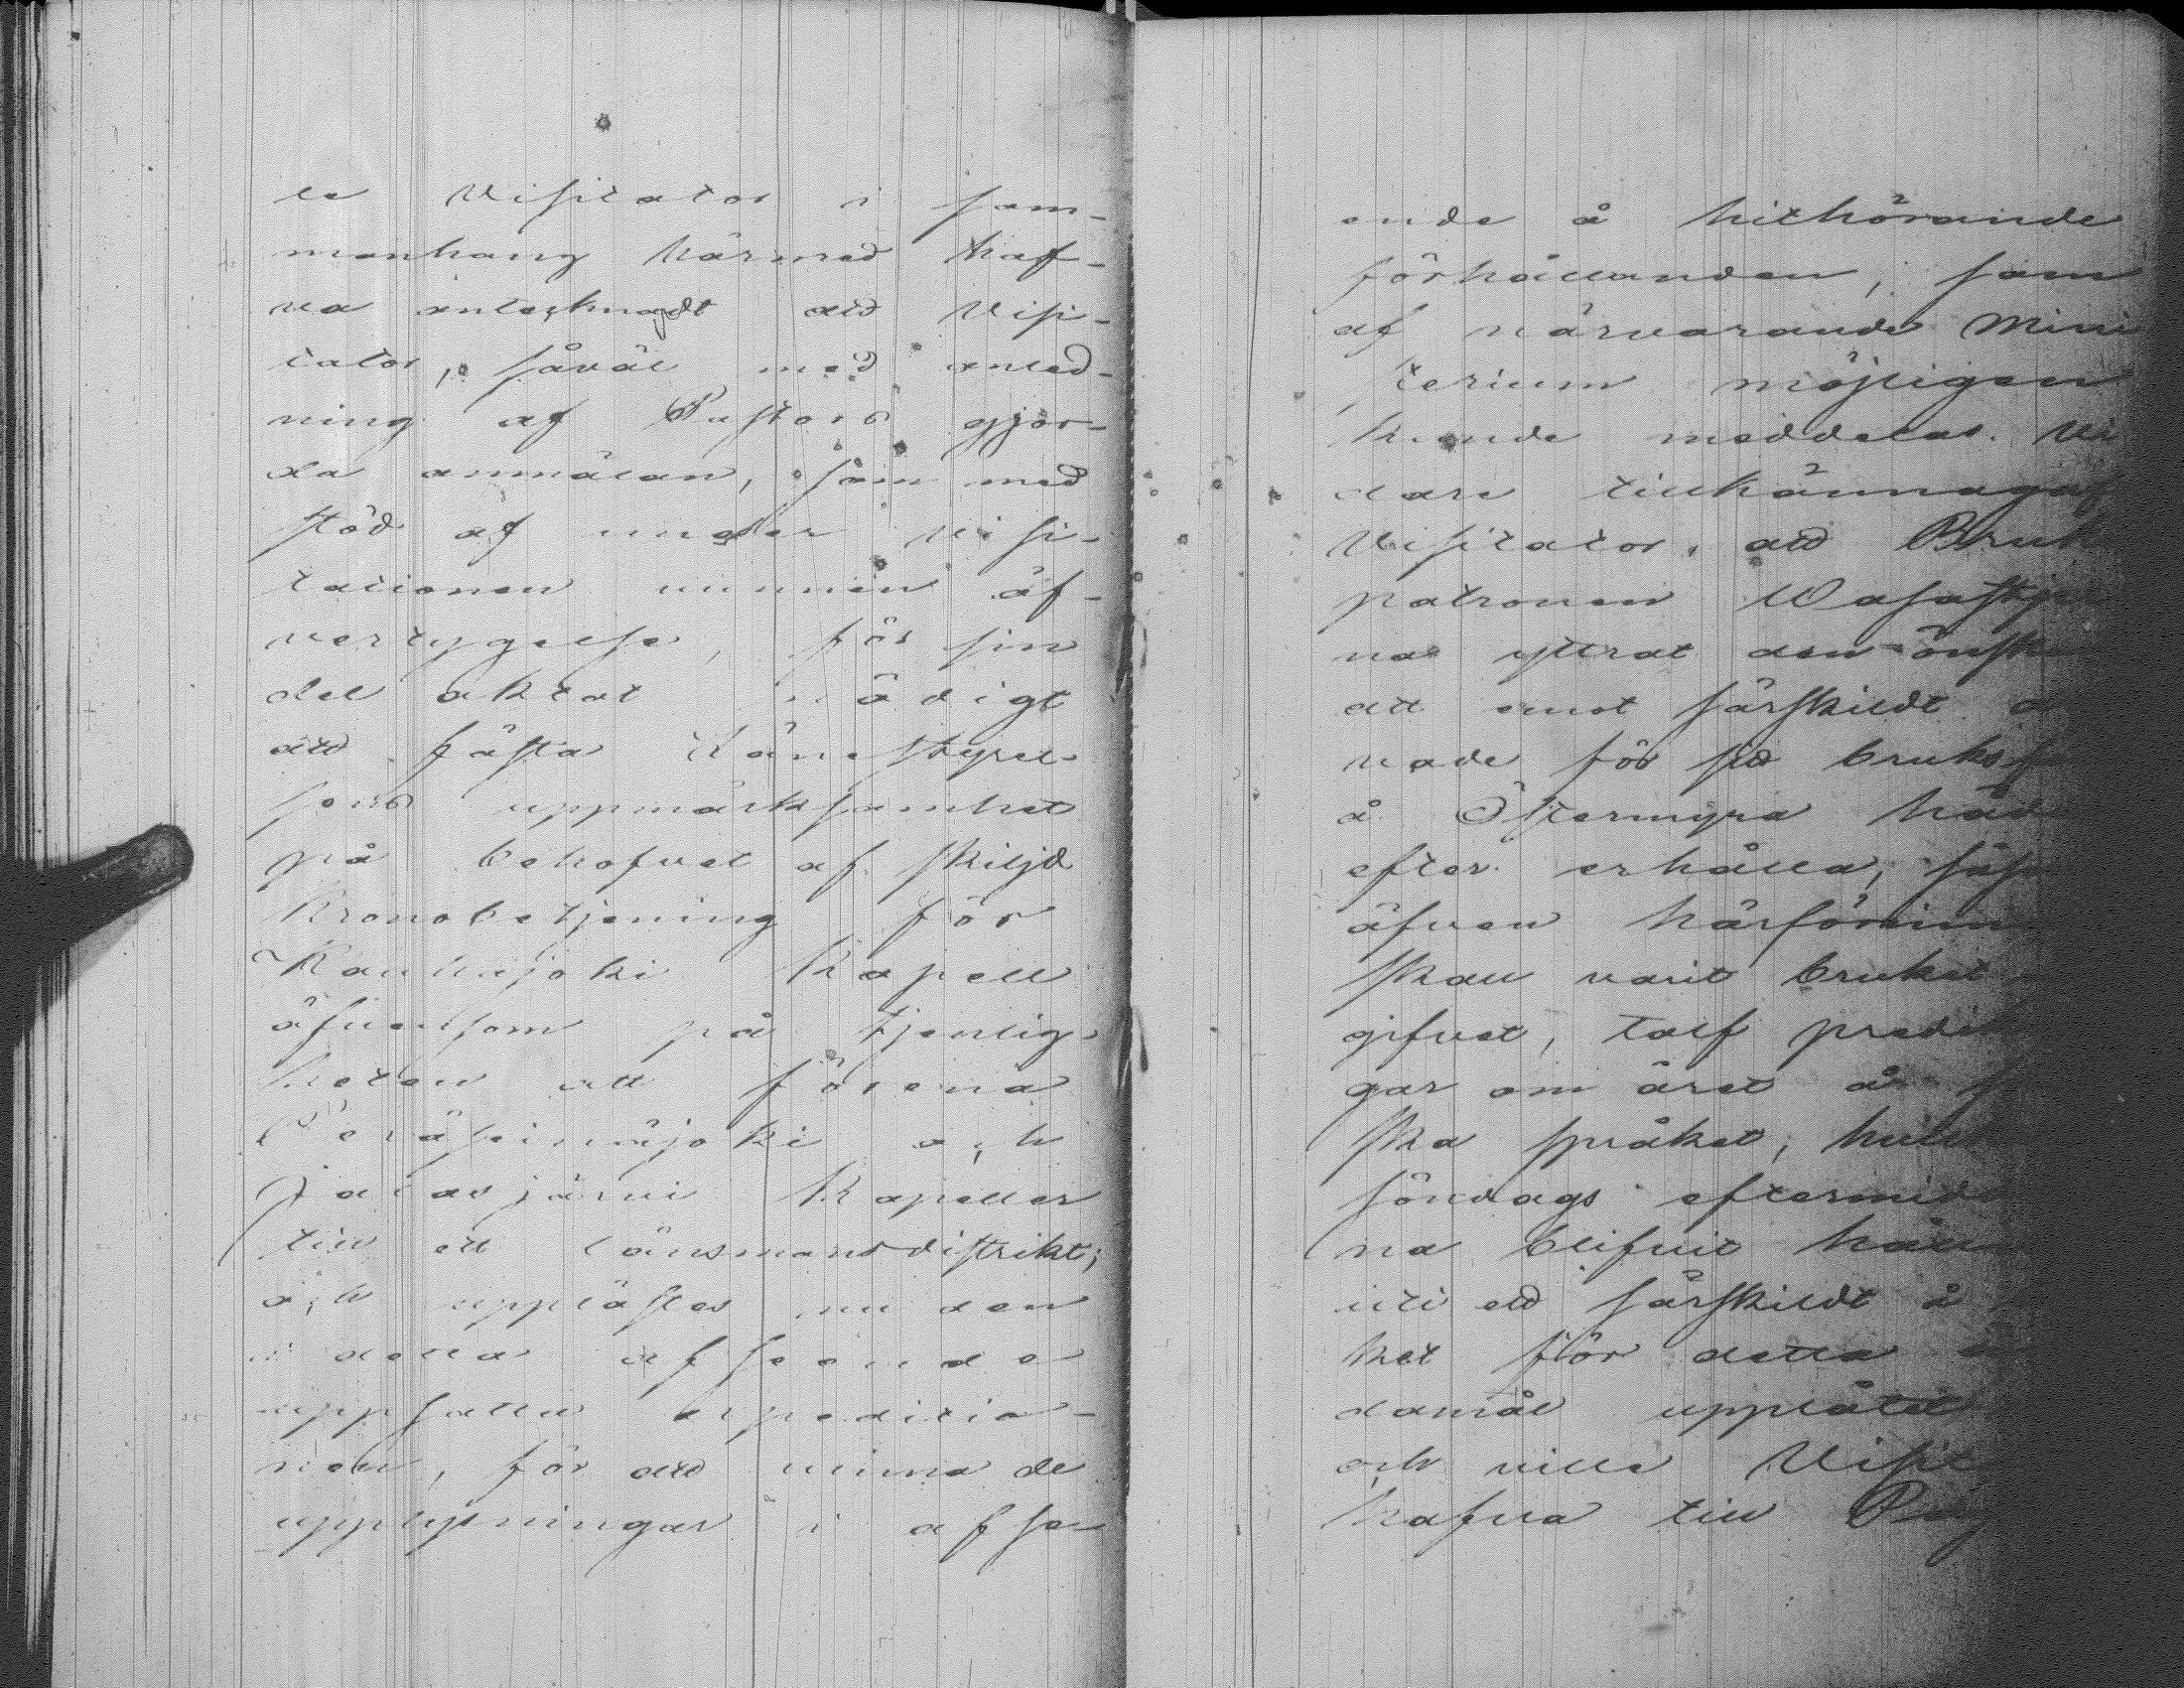 le Visitator i sam-
manhang härmed haf-
va antecknadt att Visi-
tator, såväl med anled-
ning af Pastors gjor-
da anmälan, som med
stöd af under Visi-
tationen vunnen öf-
vertygelse, för sin
del aktat nödigt
att fästa Länestyrel-
sens uppmärksamhet
på behofvet af skiljd
Kronobetjening för
Kauhajoki Kapell
äfvensom på tjenlig-
heten att förena
Peräseinäjoki och
Jalasjärvi Kapeller
till ett länsmansdistrikt;
och upplästes nu den
i detta afseende
uppsatta expeditio-
nen, för att vinna de
upplysningar i afse-
ende å hithörande
förhållanden, som
af närvarande Mini
sterium möjligen
kunde meddelas. Vi
dare tillkännagaf
Visitator, att Bruk
patronen Wasastjer
na yttrat den önsk
att emot särskildt
vade för sitt bruks
å Östermyra här
efter erhålla, såsom
äfven härförinn
skall varit bruket
gifvet, tolf predik
gar om året å
ska språket, hvilk
söndags eftermid
na blifvit håll
uti ett särskildt å
ket för detta
damål upplåtet
och ville Visit
hafva till